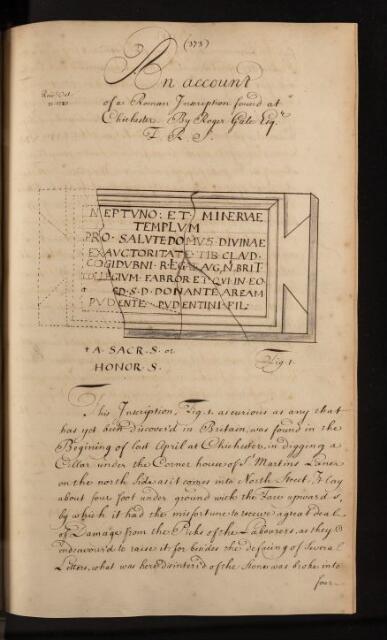 (373)
An account
Read Oct.
of a Roman Inscription found at
Chichester. By Roger Gale Esq.r
F. R. S.
NEPTUNO: ET MINERVAE
TEMPLVM
PRO SALVTE DOMVS DIVINAE
EX AVCTORITATE TIB. CLAVD.
COGIDVBNI REG. S AVG. N BRIT
COLLEGIVM FABROR ET QVI IN EO
SD. S. D DONANTE AREAM
PVDENTE PVDENTINI FIL.
† A. SACR. S. or
HONOR S.
Fig. 1.
This Inscription, Fig. 1. as curious as any that
has yet been discover'd in Britain, was found in the
Begining of last April at Chichester, in digging a
Cellar under the Corner house of St Martins Lane
on the north Side as it comes into North Street. It lay
about four foot under ground with the Face upwards,
by which it had the misfortune to receive a great deal
of Damage from the Picks of the Labourers, as they
indeavour'd to raise it for besides the defacing of Several
Letters, what was here disinterr'd of the Stone was broke into
four